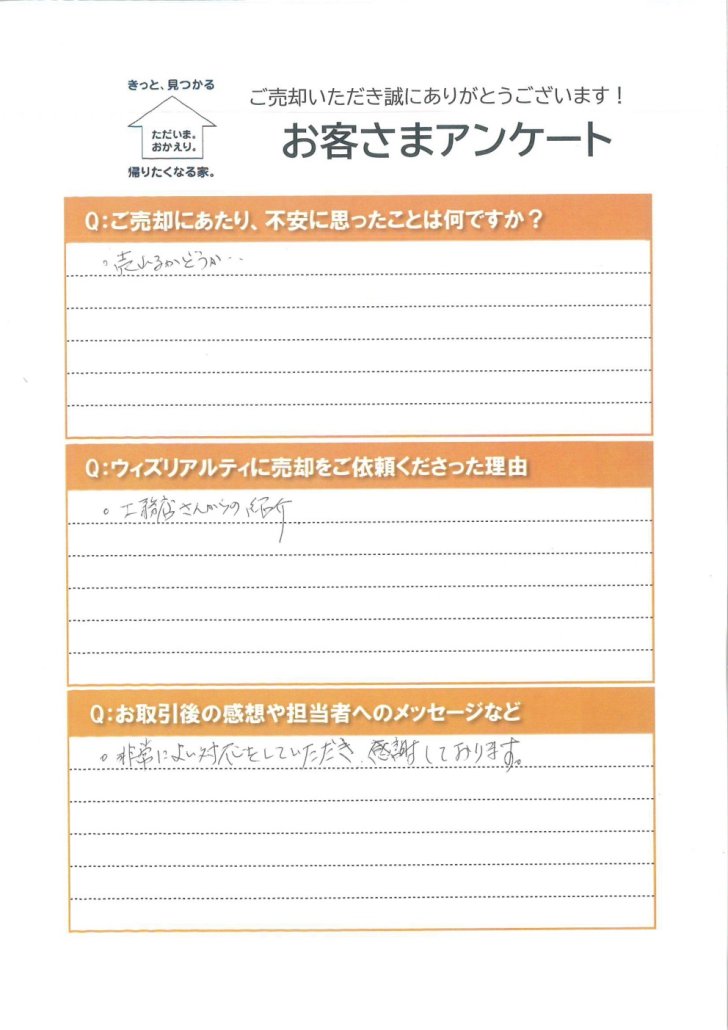 きっと、見つかる
ただいま。
おかえり。
帰りたくなる家。
ご売却いただき誠にありがとうございます！
お客さまアンケート
Q：ご売却にあたり、不安に思ったことは何ですか？
。売れるかどうか‥
Q：ウィズリアルティに売却をご依頼くださった理由
。工務店さんからの紹介
Q：お取引後の感想や担当者へのメッセージなど
。非常によい対応をしていただき、感謝しております。